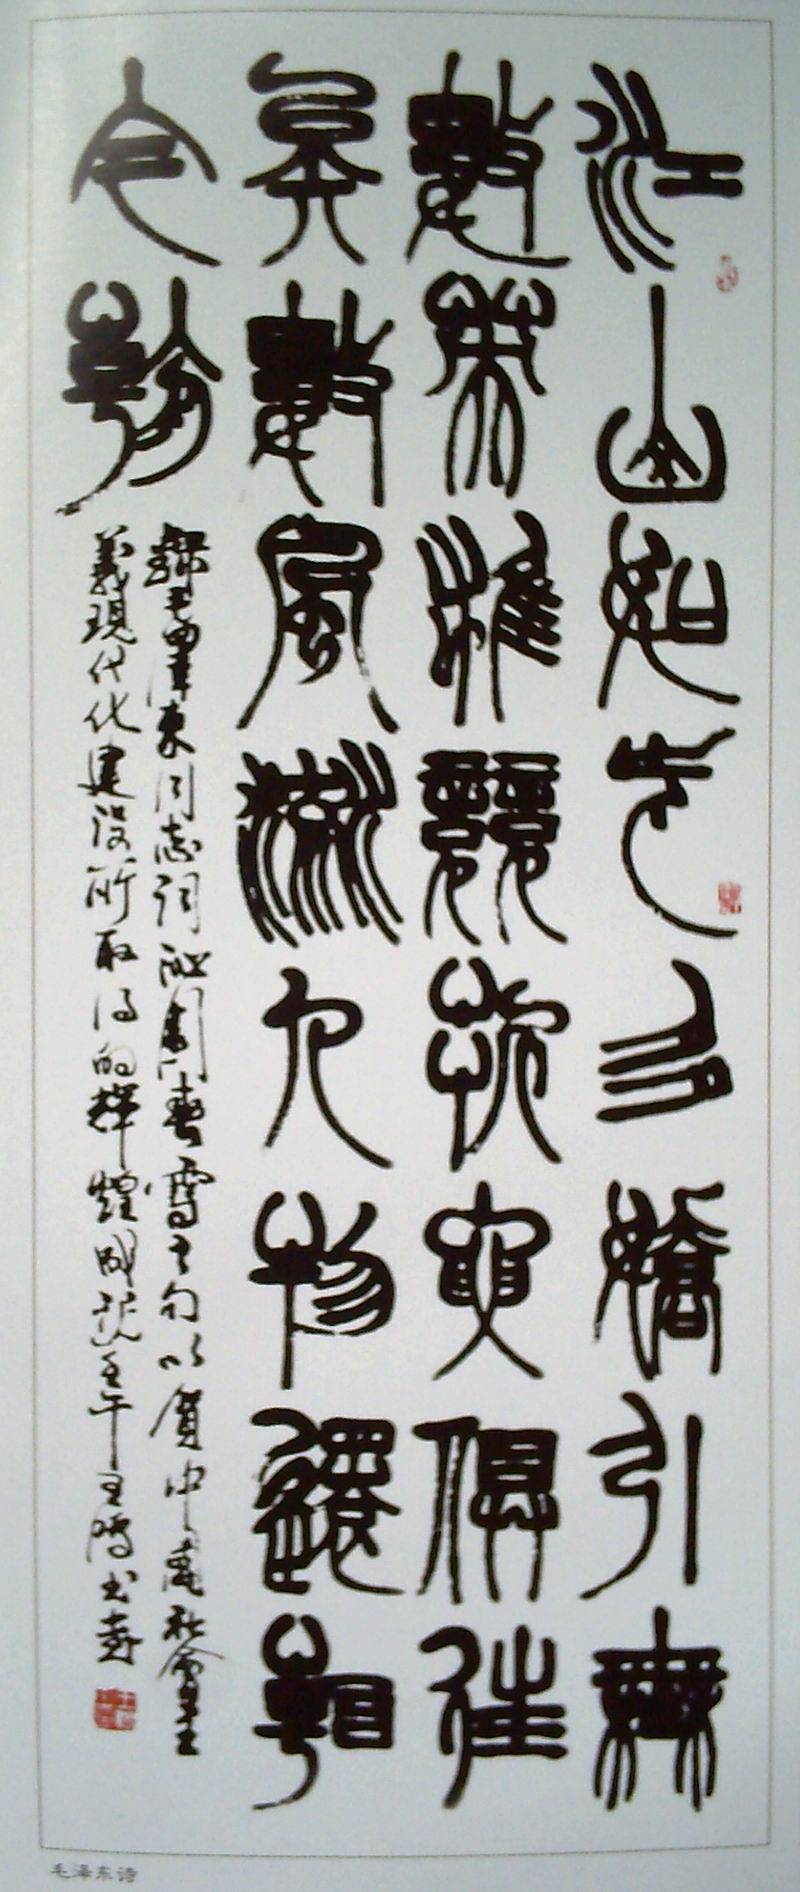 江山如此多嬌引無
數英雄競折腰俱往
矣數風流人物還看
今朝
錄毛澤東同志詞沁園春雪之句以賀中國社會主
義現代化建設所取得的輝煌成就壬午王
毛泽东诗